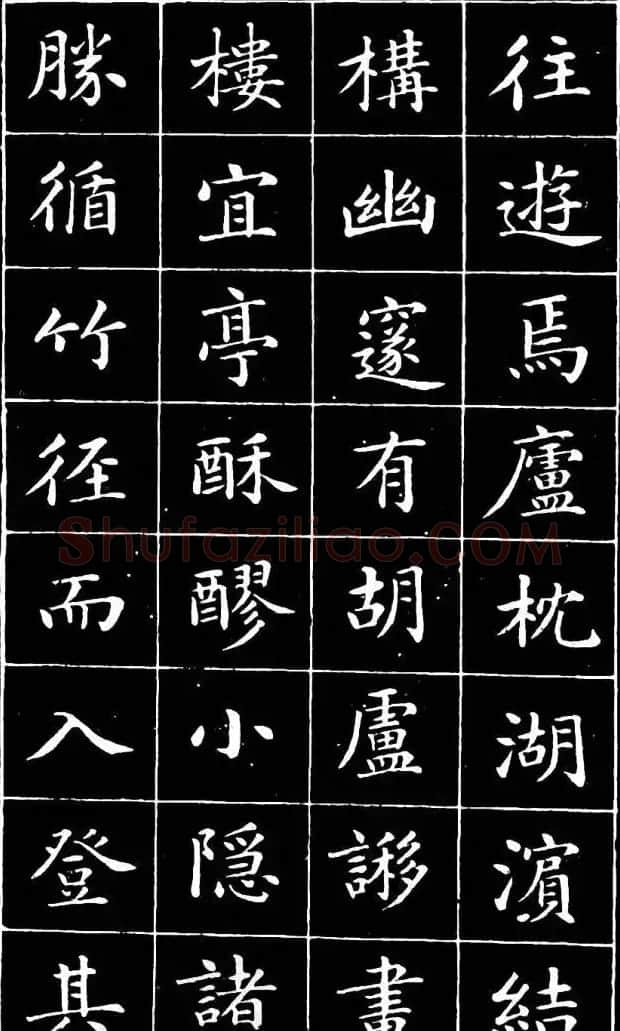 往遊焉廬枕湖濵結
構幽邃有胡盧謻畫
樓宜亭酥醪小隱諸
勝循竹徑而入登其
Shufaziliao.COM